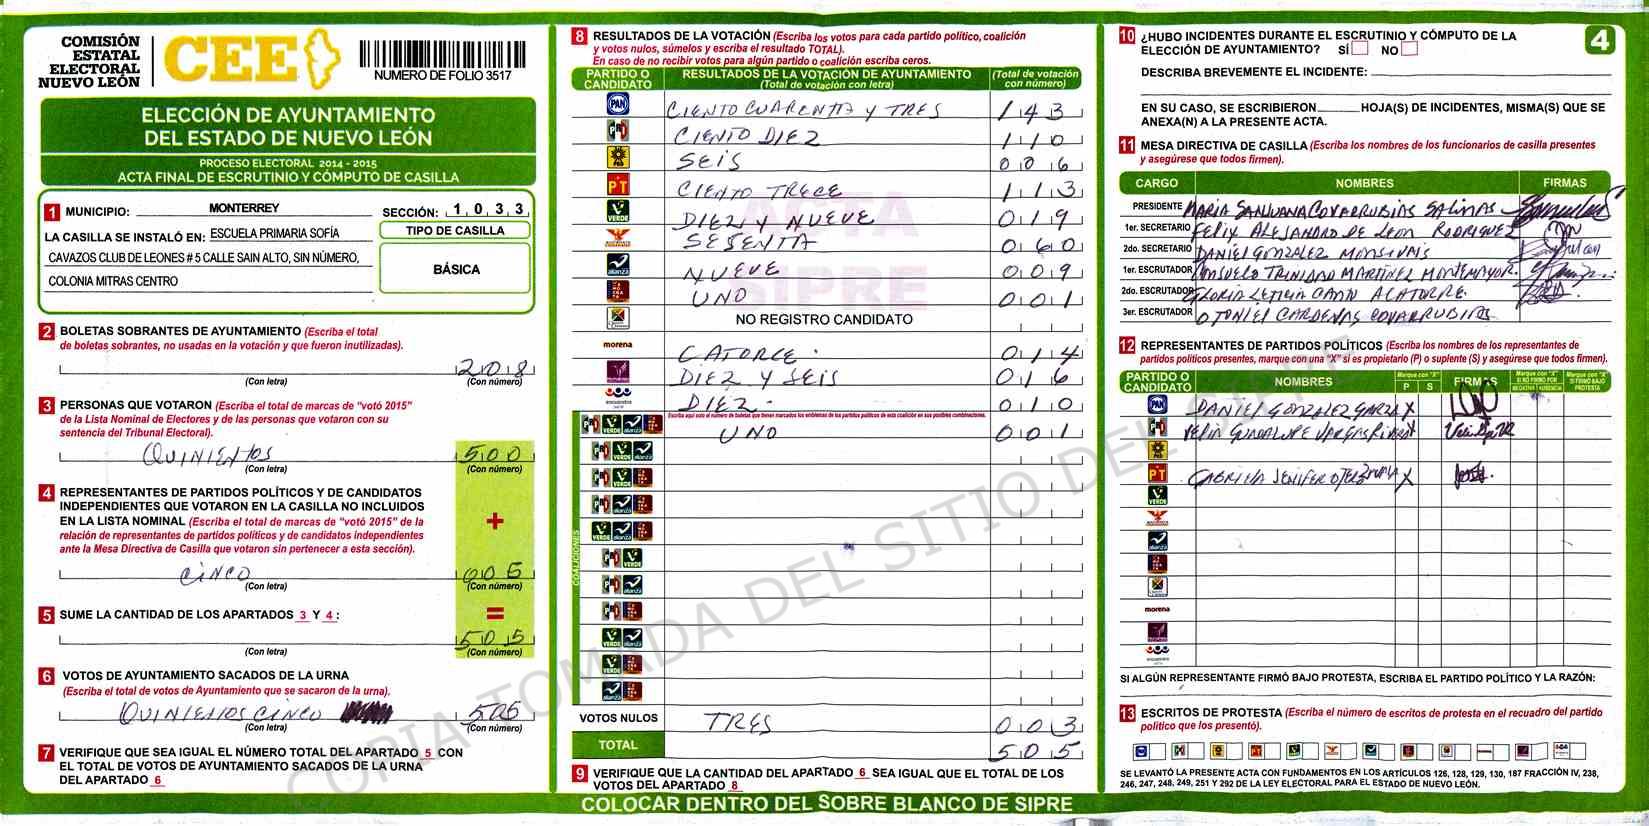 COMISIÓN
ESTATAL
ELECTORAL
NUEVO LEÓN
CEE
NUMERO DE FOLIO 3517
ELECCIÓN DE AYUNTAMIENTO
DEL ESTADO DE NUEVO LEÓN
PROCESO ELECTORAL 2014 - 2015
ACTA FINAL DE ESCRUTINIO Y CÓMPUTO DE CASILLA
1 MUNICIPIO: MONTERREY SECCIÓN: 1 0 3 3
LA CASILLA SE INSTALÓ EN: ESCUELA PRIMARIA SOFÍA
CAVAZOS CLUB DE LEONES # 5 CALLE SAIN ALTO, SIN NÚMERO,
COLONIA MITRAS CENTRO
TIPO DE CASILLA
BÁSICA
2 BOLETAS SOBRANTES DE AYUNTAMIENTO (Escriba el total
de boletas sobrantes, no usadas en la votación y que fueron inutilizadas).
208
(Con letra) (Con número)
3 PERSONAS QUE VOTARON (Escriba el total de marcas de "votó 2015"
de la Lista Nominal de Electores y de las personas que votaron con su
sentencia del Tribunal Electoral).
QUINIENTOS 500
(Con letra) (Con número)
4 REPRESENTANTES DE PARTIDOS POLÍTICOS Y DE CANDIDATOS
INDEPENDIENTES QUE VOTARON EN LA CASILLA NO INCLUIDOS
EN LA LISTA NOMINAL (Escriba el total de marcas de "votó 2015" de la
relación de representantes de partidos políticos y de candidatos independientes
ante la Mesa Directiva de Casilla que votaron sin pertenecer a esta sección).
+
CINCO 005
(Con letra) (Con número)
5 SUME LA CANTIDAD DE LOS APARTADOS 3 Y 4 :
=
505
(Con letra) (Con número)
6 VOTOS DE AYUNTAMIENTO SACADOS DE LA URNA
(Escriba el total de votos de Ayuntamiento que se sacaron de la urna).
QUINIENTOS CINCO 505
(Con letra) (Con número)
7 VERIFIQUE QUE SEA IGUAL EL NÚMERO TOTAL DEL APARTADO 5 CON
EL TOTAL DE VOTOS DE AYUNTAMIENTO SACADOS DE LA URNA
DEL APARTADO 6
8 RESULTADOS DE LA VOTACIÓN (Escriba los votos para cada partido político, coalición
y votos nulos, súmelos y escriba el resultado TOTAL).
En caso de no recibir votos para algún partido o coalición escriba ceros.
PARTIDO O
CANDIDATO
RESULTADOS DE LA VOTACIÓN DE AYUNTAMIENTO
(Total de votación con letra)
(Total de votación
con número)
PAN CIENTO CUARENTA Y TRES 143
PRI CIENTO DIEZ 110
PRD SEIS 006
PT CIENTO TRECE 113
VERDE DIEZ Y NUEVE 019
SESENTA 060
alianza NUEVE 009
UNO 001
NO REGISTRO CANDIDATO
morena CATORCE 014
DIEZ Y SEIS 016
encuentro DIEZ 010
Escriba aquí solo el número de boletas que tienen marcados los emblemas de los partidos políticos de esta coalición en sus posibles combinaciones.
UNO 001
COALICIONES
VOTOS NULOS TRES 003
TOTAL 505
9 VERIFIQUE QUE LA CANTIDAD DEL APARTADO 6 SEA IGUAL QUE EL TOTAL DE LOS
VOTOS DEL APARTADO 8
ACTA
SIPRE
COPIA TOMADA DEL SITIO DEL SIPRE
10 ¿HUBO INCIDENTES DURANTE EL ESCRUTINIO Y CÓMPUTO DE LA
ELECCIÓN DE AYUNTAMIENTO? SÍ NO
4
DESCRIBA BREVEMENTE EL INCIDENTE:
EN SU CASO, SE ESCRIBIERON HOJA(S) DE INCIDENTES, MISMA(S) QUE SE
ANEXA(N) A LA PRESENTE ACTA.
11 MESA DIRECTIVA DE CASILLA (Escriba los nombres de los funcionarios de casilla presentes
y asegúrese que todos firmen).
CARGO NOMBRES FIRMAS
PRESIDENTE MARIA SANJUANA COVARRUBIAS SALINAS
1er. SECRETARIO FELIX ALEJANDRO DE LEON RODRIGUEZ
2do. SECRETARIO DANIEL GONZALEZ MONSIVAIS
1er. ESCRUTADOR CONSUELO TRINIDAD MARTINEZ MONTEMAYOR
2do. ESCRUTADOR GLORIA LETICIA CANTU ALATORRE
3er. ESCRUTADOR OTONIEL CARDENAS COVARRUBIAS
12 REPRESENTANTES DE PARTIDOS POLÍTICOS (Escriba los nombres de los representantes de
partidos políticos presentes, marque con una "X" si es propietario (P) o suplente (S) y asegúrese que todos firmen).
PARTIDO O
CANDIDATO
NOMBRES
Marque con "X"
P S
FIRMAS
Marque con "X"
SI NO FIRMÓ POR
NEGATIVA AUSENCIA
Marque con "X"
SI FIRMÓ BAJO
PROTESTA
PAN DANIEL GONZALEZ GARZA X
PRI VELIA GUADALUPE VARGAS RIVERA X
PRD
PT GABRIELA JENIFER X
VERDE
alianza
morena
encuentro
SI ALGÚN REPRESENTANTE FIRMÓ BAJO PROTESTA, ESCRIBA EL PARTIDO POLÍTICO Y LA RAZÓN:
13 ESCRITOS DE PROTESTA (Escriba el número de escritos de protesta en el recuadro del partido
político que los presentó).
SE LEVANTÓ LA PRESENTE ACTA CON FUNDAMENTOS EN LOS ARTÍCULOS 126, 128, 129, 130, 187 FRACCIÓN IV, 238,
246, 247, 248, 249, 251 Y 292 DE LA LEY ELECTORAL PARA EL ESTADO DE NUEVO LEÓN.
COLOCAR DENTRO DEL SOBRE BLANCO DE SIPRE